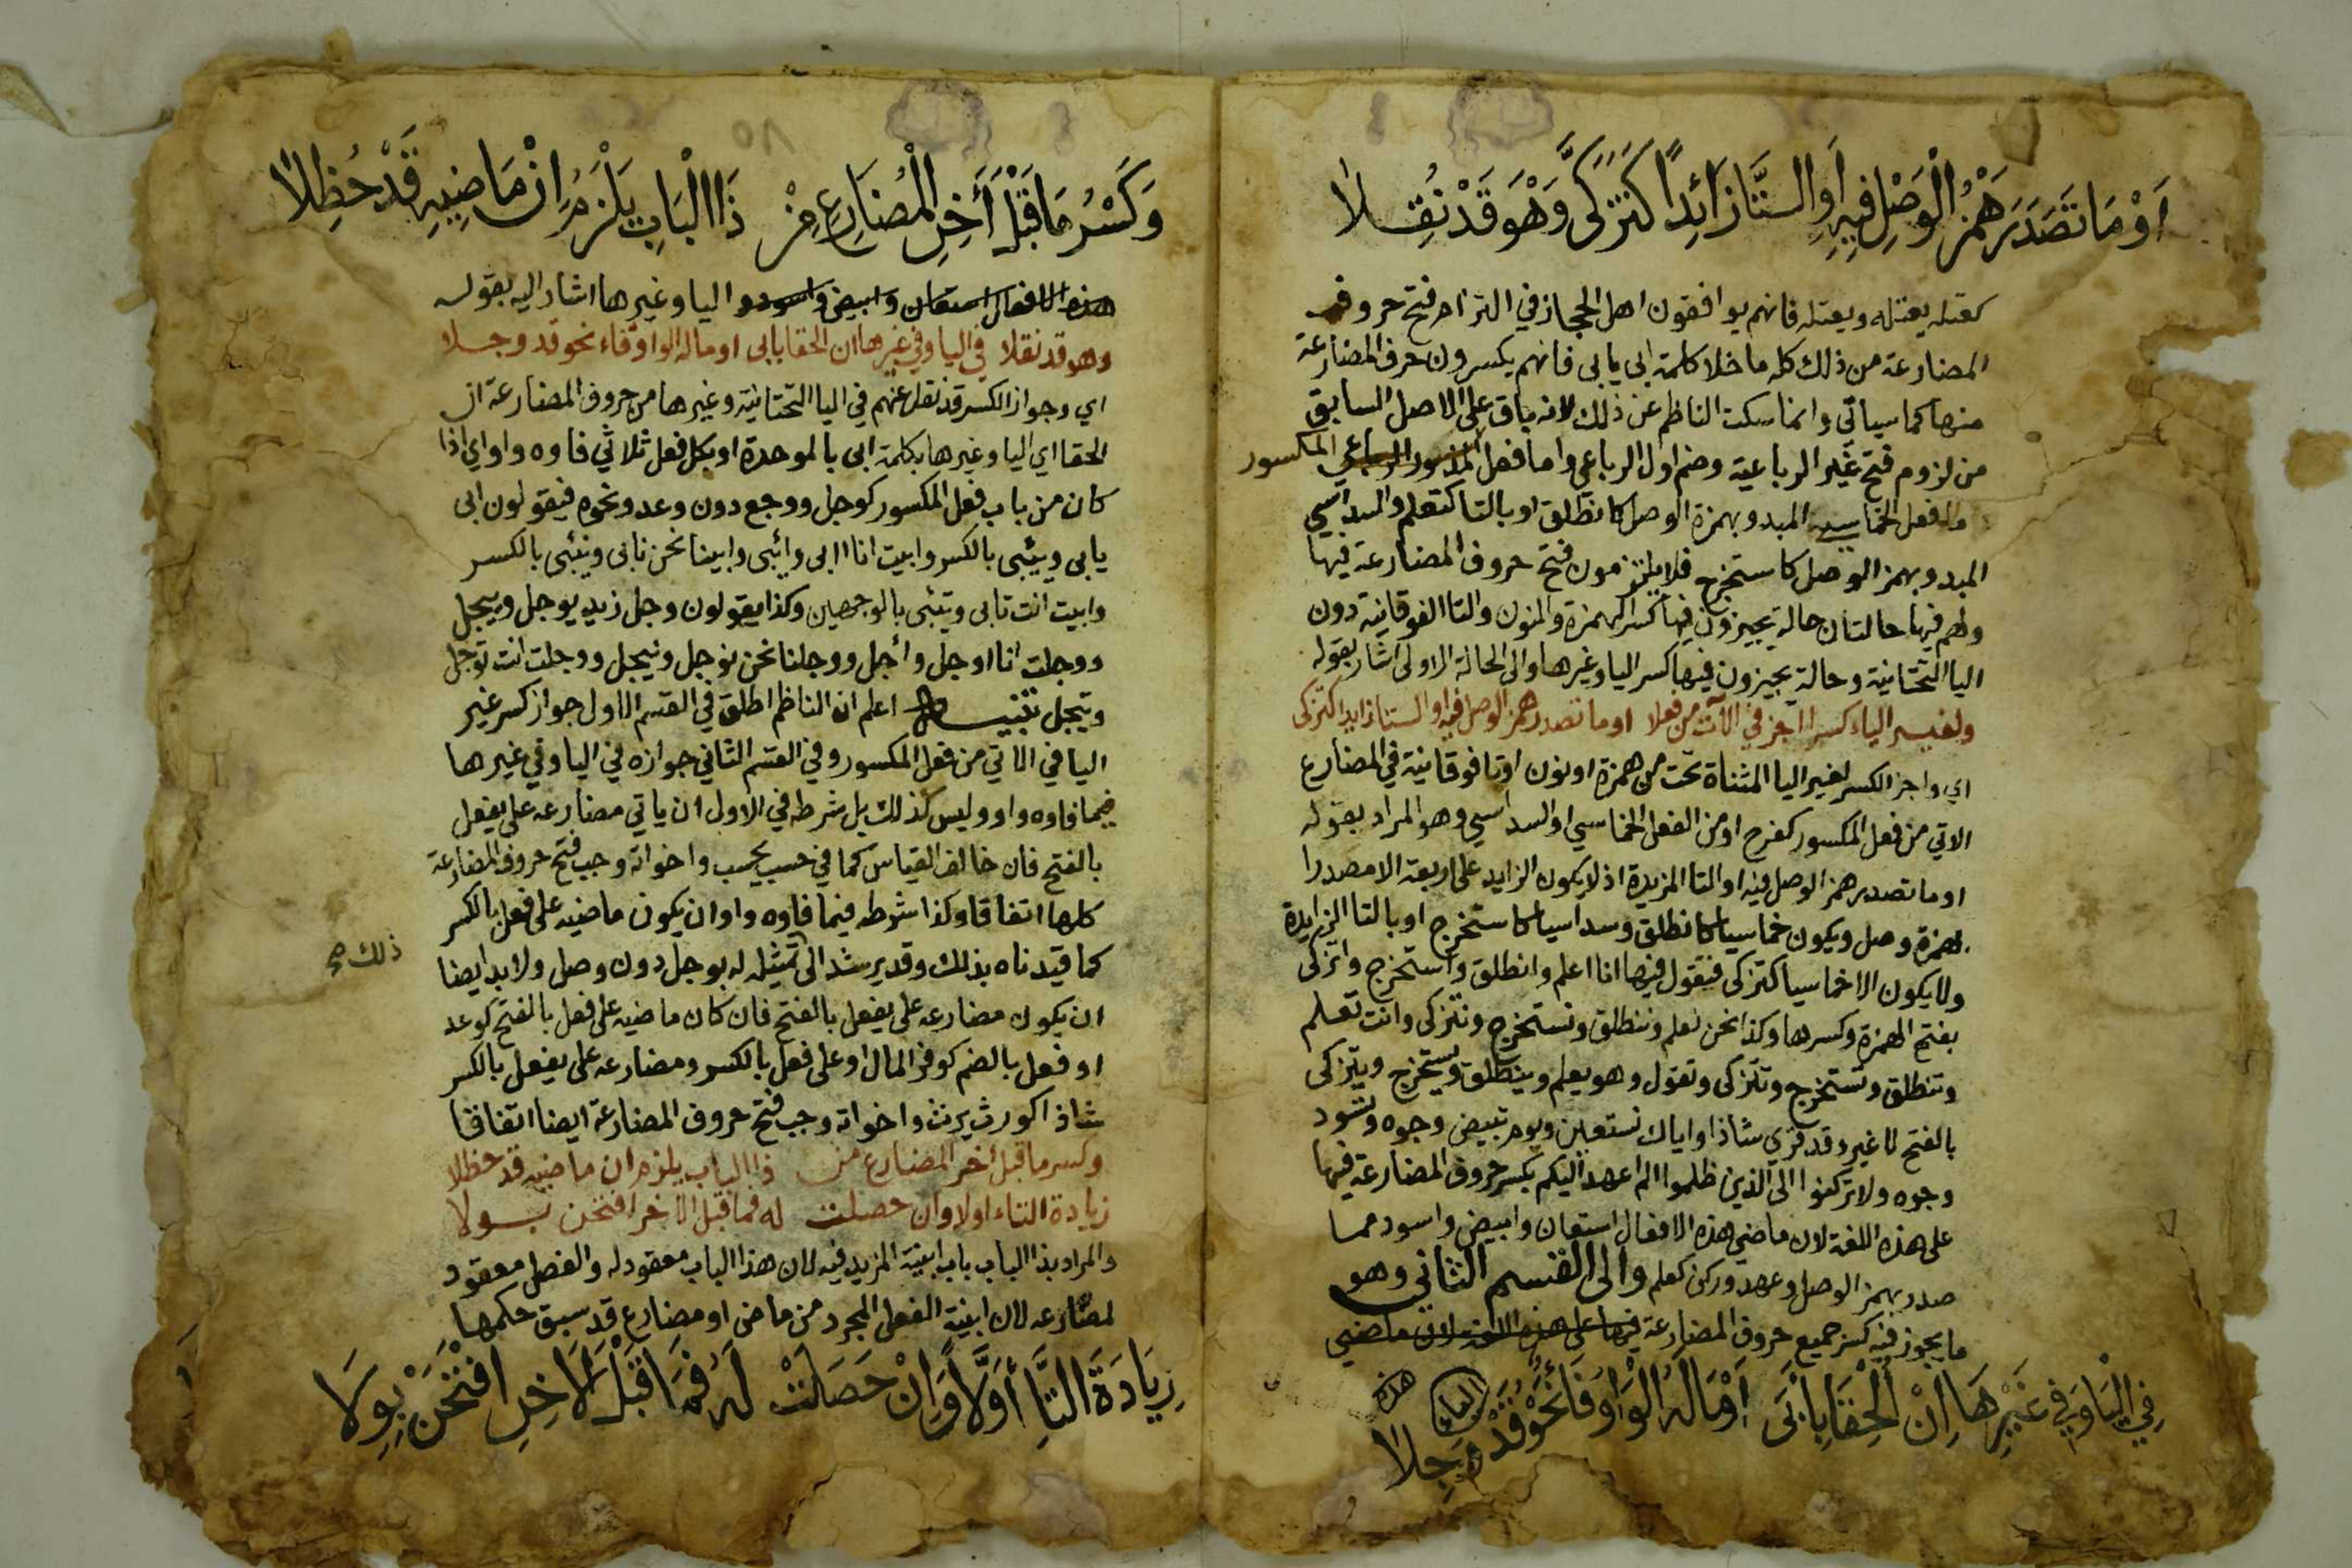 أَوْ مَا تَصَدَّرَ هَمْزُ الْوَصْلِ فِيهِ أَوِ التَّا زَائِدًا كَتَزَكَّى وَهْوَ قَدْ نُقِلَا
كقتله يقتله ويقتله فانهم يوافقون اهل الحجاز في التزام فتح حروف
المضارعة من ذلك كله ما خلا كلمة ابى يابى فانهم يكسرون حرف المضارعة
منها كما سياتي وانما سكت الناظم عن ذلك لانه باق على الاصل السابق
من لزوم فتح غير الرباعية وضم اول الرباعي واما فعل المكسور
والفعل الخماسي المبدو بهمزة الوصل كانطلق او بالتا كتعلم والسداسي
المبدو بهمز الوصل كاستخرج فلا يلتزمون فتح حروف المضارعة فيها
ولهم فيها حالتان حالة يجيزون فيها كسر الهمزة والنون والتا الفوقانية دون
اليا التحتانية وحالة يجيزون فيها كسر اليا وغيرها والى الحالة الاولى اشار بقوله
ولغير الياء كسرا اجز في الآت من فعلا او ما تصدر همز الوصل فيه او التا زايدا كتزكى
اي واجز الكسر لغير اليا المثناة تحت من همزة او نون او تا فوقانية في المضارع
الاتي من فعل المكسور كفرح او من الفعل الخماسي او السداسي وهو المراد بقوله
او ما تصدر همز الوصل فيه او التا المزيدة اذ لا يكون الزايد على اربعة الا مصدرا
بهمزة وصل ويكون خماسيا كانطلق وسداسيا كاستخرج او بالتا الزايدة
ولا يكون الا خماسيا كتزكى فتقول فيها انا اعلم وانطلق واستخرج واتزكى
بفتح الهمزة وكسرها وكذا نحن نعلم وننطلق ونستخرج ونتزكى وانت تعلم
وتنطلق وتستخرج وتتزكى وتقول وهو يعلم وينطلق ويستخرج ويتزكى
بالفتح لا غير وقد قري شاذا واياك نستعين ويوم تبيض وجوه وتسود
وجوه ولا تركنوا الى الذين ظلموا الم اعهد اليكم بكسر حروف المضارعة فيها
على هذه اللغة لان ماضي هذه الافعال استعان وابيض واسود مما
صدر بهمز الوصل وعهد وركن كعلم والى القسم الثاني وهو
ما يجوز فيه كسر جميع حروف المضارعة فيها على هذه اللغة لان ماضي
هذه
فِي الْيَا وَفِي غَيْرِهَا إِنْ أُلْحِقَا بِأَبَى أَوْ مَا لَهُ الْوَاوُ فَاءً نَحْوُ قَدْ وَجِلَا
وَكَسْرُ مَا قَبْلَ آخِرِ الْمُضَارِعِ مِنْ ذَا الْبَابِ يَلْزَمُ إِنْ مَاضِيهِ قَدْ حُظِلَا
هذه الافعال استعان وابيض واسود و اليا وغيرها اشار اليه بقوله
وهو قد نقلا في اليا وفي غيرها ان الحقا بابى او ما له الواو فاء نحو قد وجلا
اي وجواز الكسر قد نقل عنهم في اليا التحتانية وغيرها من حروف المضارعة ان
الحقا اي اليا وغيرها بكلمة ابى بالموحدة او بكل فعل ثلاثي فاوه واو اي اذا
كان من باب فعل المكسور كوجل ووجع دون وعد ونحوه فيقولون ابى
يابى ويئبى بالكسر وابيت انا ابى وائبى وابينا نحن نابى ونئبى بالكسر
وابيت انت تابى وتئبى بالوجهين وكذا يقولون وجل زيد يوجل وييجل
ووجلت انا اوجل وأجل ووجلنا نحن نوجل ونيجل ووجلت انت توجل
وتيجل تنبيه اعلم ان الناظم اطلق في القسم الاول جواز كسر غير
اليا في الاتي من فعل المكسور وفي القسم الثاني جوازه في اليا وفي غيرها
فيما فاوه واو وليس كذلك بل شرطه في الاول ان ياتي مضارعه على يفعل
بالفتح فان خالف القياس كما في حسب يحسب واخواته وجب فتح حروف المضارعة
كلها اتفاقا وكذا شرطه فيما فاوه واو ان يكون ماضيه على فعل بالكسر
كما قيدناه بذلك وقد يرشد الى تمثيله له بوجل دون وصل ولا بد ايضا
ذلك صح
ان يكون مضارعه على يفعل بالفتح فان كان ماضيه على فعل بالفتح كوعد
او فعل بالضم كوفر المال او على فعل بالكسر ومضارعه على يفعل بالكسر
شاذا كورث يرث واخواته وجب فتح حروف المضارعة ايضا اتفاقا
وكسر ما قبل آخر المضارع من ذا الباب يلزم ان ماضيه قد حظلا
زيادة التاء اولا وان حصلت له فما قبل الآخر افتحن بولا
والمراد بذا الباب باب ابنية المزيد فيه لان هذا الباب معقود له والفصل معقود
لمضارعه لان ابنية الفعل المجرد من ماض او مضارع قد سبق حكمها
زِيَادَةَ التَّا أَوَّلًا وَإِنْ حَصَلَتْ لَهُ فَمَا قَبْلَ الْآخِرِ افْتَحَنْ بِوِلَا